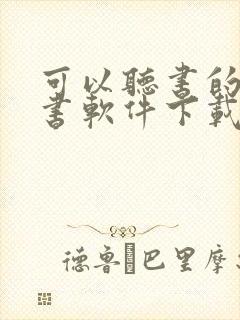 可以聽書的
書軟件下載
德鲁 巴里摩